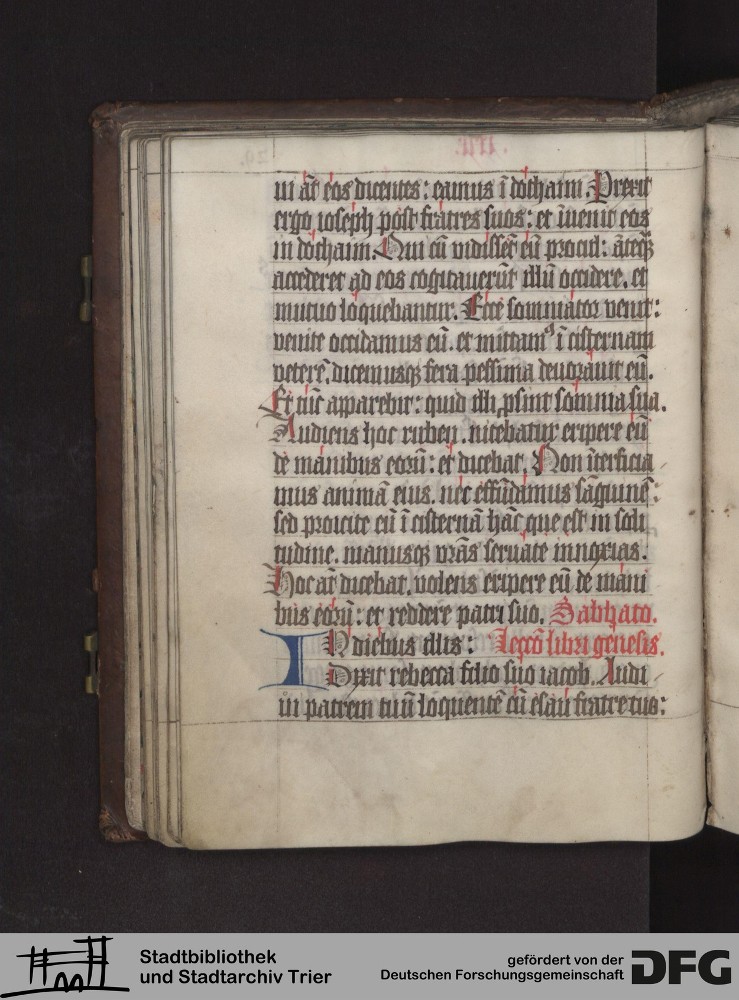 ui āt eos dicentes: eamus ī dothaim. Prexit
ergo ioseph post fratres suos: et īuenit eos
in dothaim. Qui cū vidissēt eū procul: āteq̄ȝ
accederet ad eos cogitauerūt illū occidere. et
mutuo loquebantur. Ecce somniator venit:
venite occidamus eū. et mittamꝰ ī cisternam
veterē. dicemusqȝ fera pessima deuorauit eū.
Et tūc apparebit: quid illi ꝓsint somnia sua.
Audiens hoc ruben. nitebatur eripere eū
de manibus eorū: et dicebat. Non īterficia
mus animā eius. nec effūdamus sāguinē:
sed proicite eū ī cisternā hāc que est in soli
tudine. manusqȝ vrās seruate innoxias.
Hoc āt dicebat. volens eripere eū de mani
bus eorū: et reddere patri suo. Sabbato.
IN diebus illis: Lectō libri genesis.
Dixit rebecca filio suo iacob. Audi
ui patrem tuū loquentē cū esau fratre tuo:
Stadtbibliothek
und Stadtarchiv Trier
gefördert von der
Deutschen Forschungsgemeinschaft
DFG